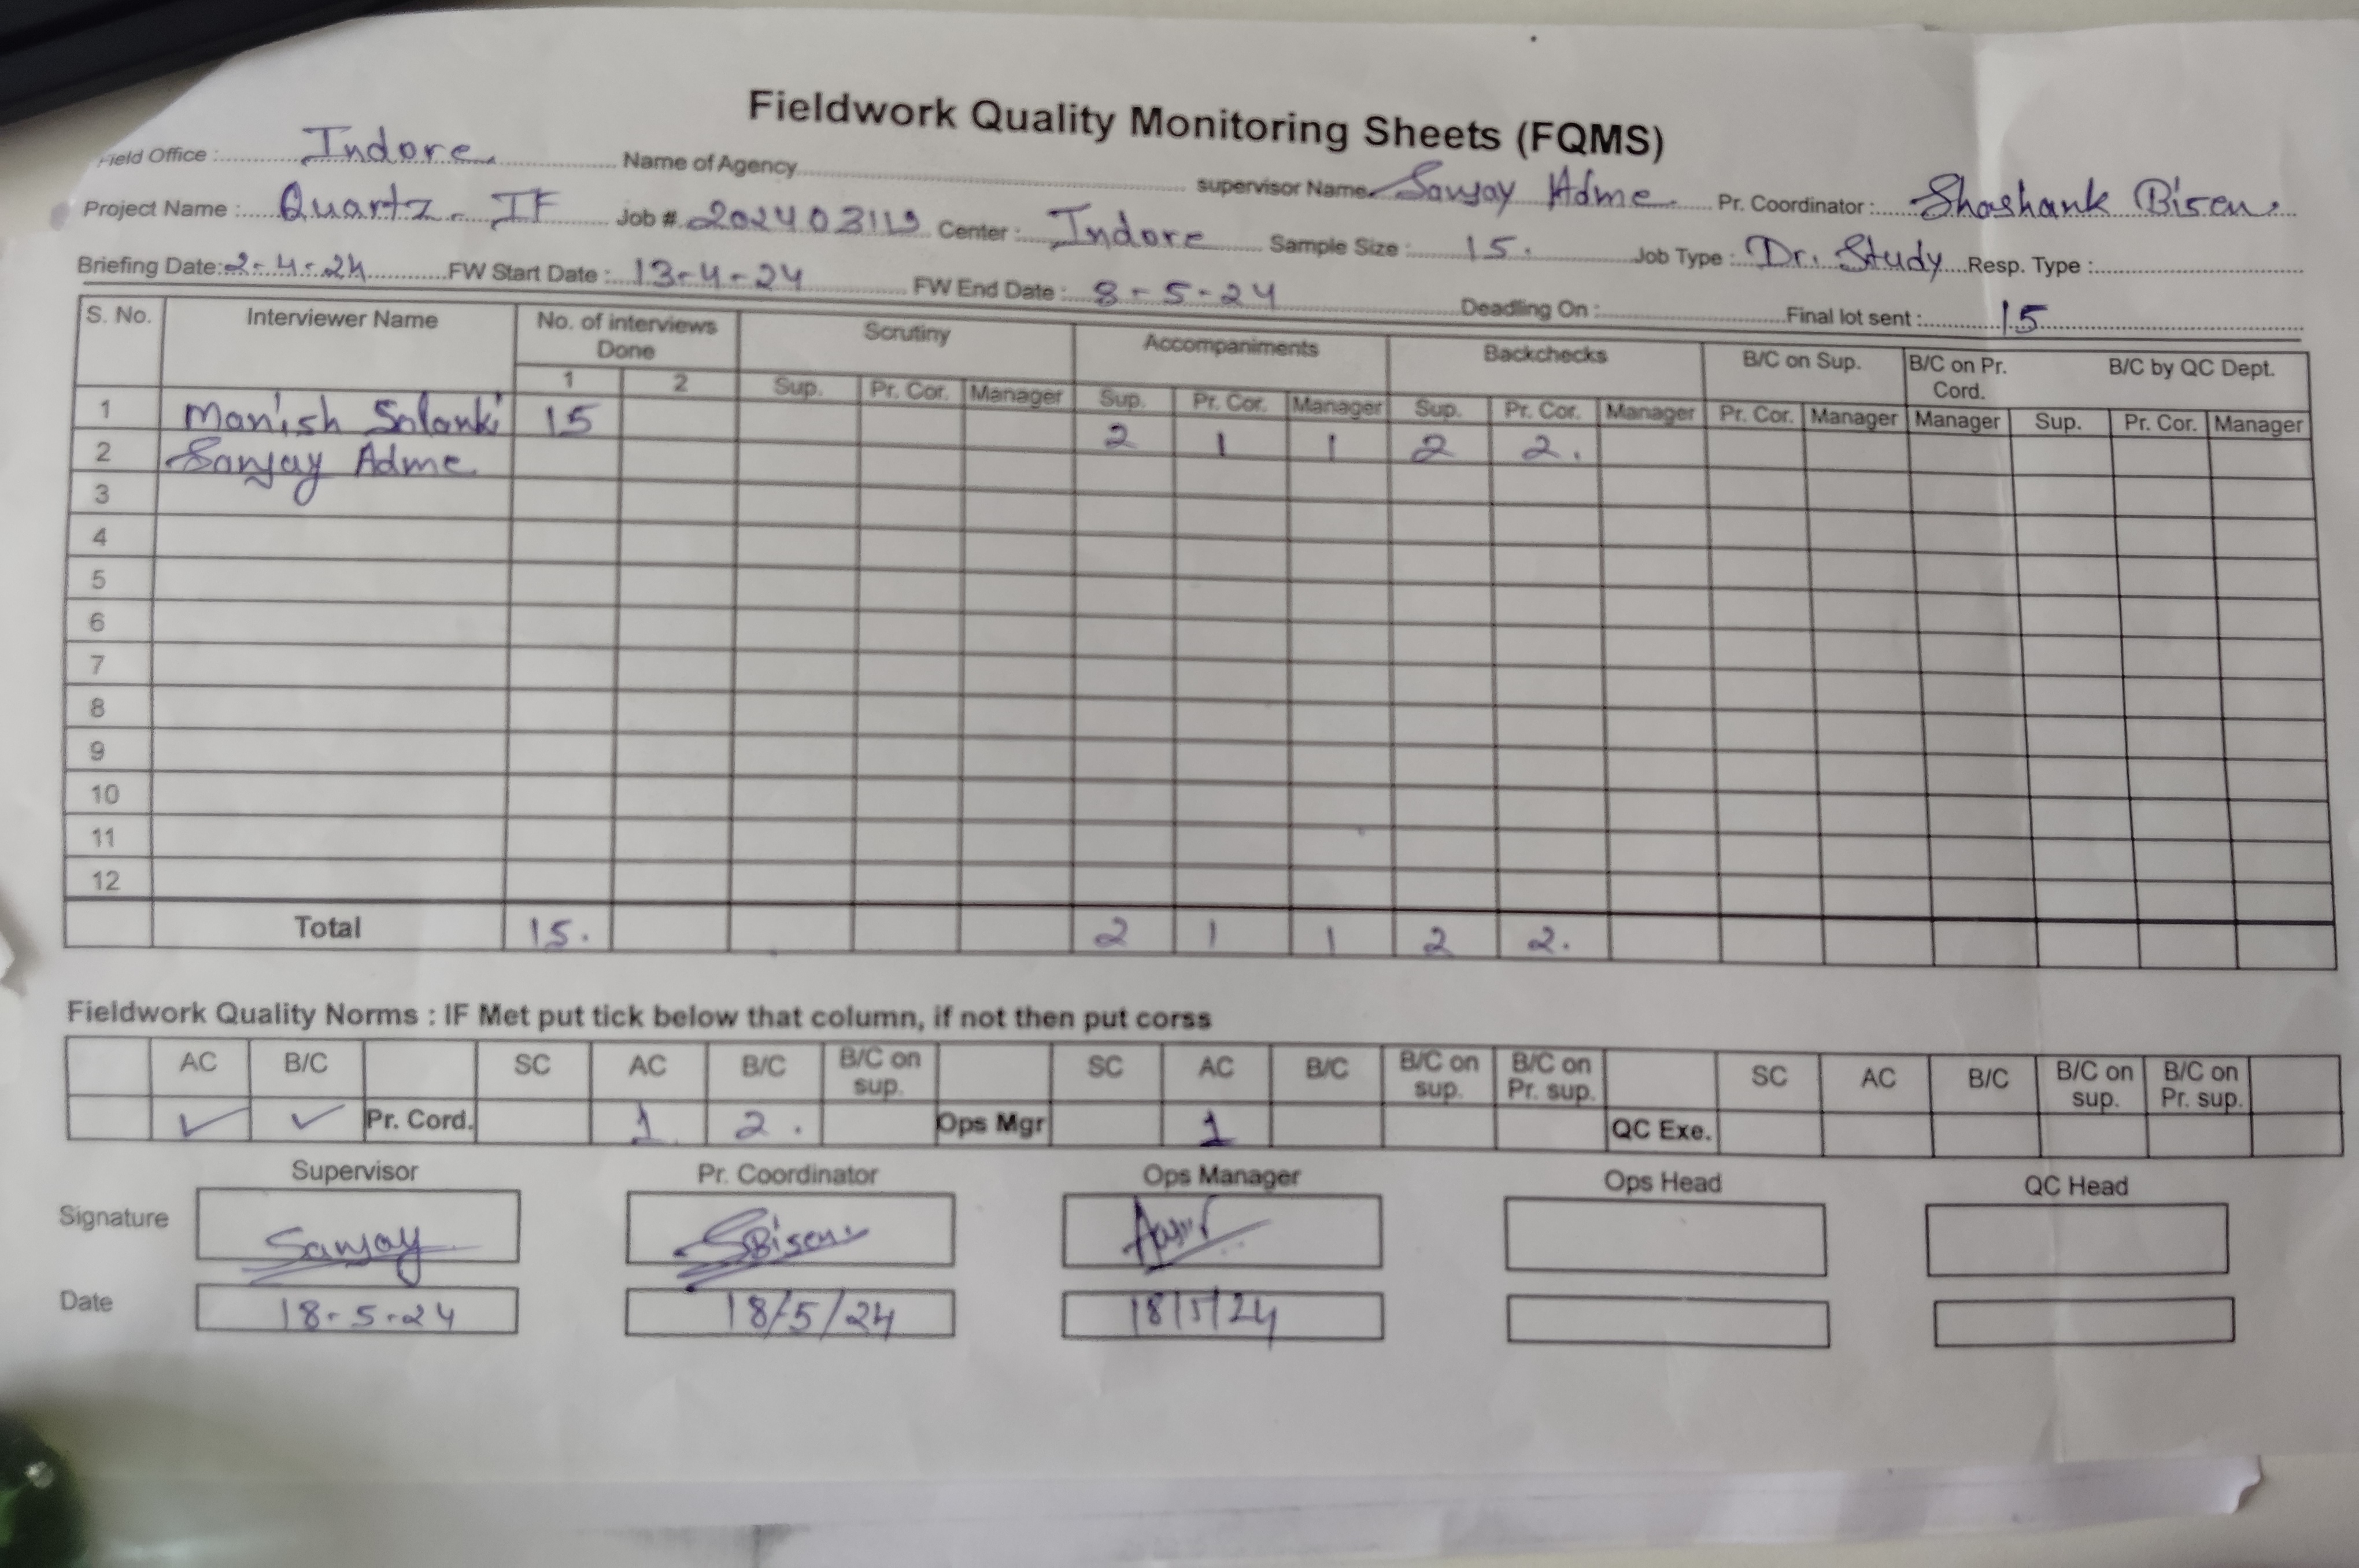 Fieldwork Quality Monitoring Sheets (FQMS)
Field Office : Indore Name of Agency supervisor Name Sanjay Adme Pr. Coordinator : Shashank Bisen.
Project Name : Quartz - IF Job # Center : Indore Sample Size : 15. Job Type : Dr. Study Resp. Type :
Briefing Date: 2-4-24 FW Start Date : 13-4-24 FW End Date : 8-5-24 Deadling On : Final lot sent : 15
S. No. Interviewer Name No. of interviews Done Scrutiny Accompaniments Backchecks B/C on Sup. B/C on Pr. Cord. B/C by QC Dept.
1 2 Sup. Pr. Cor. Manager Sup. Pr. Cor. Manager Sup. Pr. Cor. Manager Pr. Cor. Manager Manager Sup. Pr. Cor. Manager
1 Manish Solanki 15 2 1 1 2 2.
2 Sanjay Adme
3
4
5
6
7
8
9
10
11
12
Total 15. 2 1 1 2 2.
Fieldwork Quality Norms : IF Met put tick below that column, if not then put corss
AC B/C SC AC B/C B/C on sup. SC AC B/C B/C on sup. B/C on Pr. sup. SC AC B/C B/C on sup. B/C on Pr. sup.
✓ ✓ Pr. Cord. 1 2. Ops Mgr 1 QC Exe.
Supervisor Pr. Coordinator Ops Manager Ops Head QC Head
Signature Sanjay SBisen.
Date 18-5-24 18/5/24 18/5/24